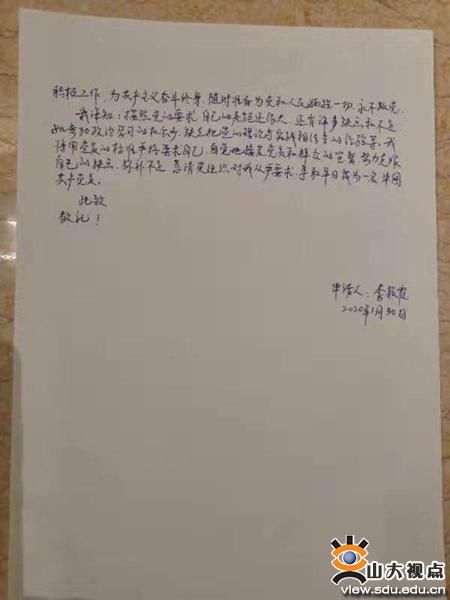 积极工作,为共产主义奋斗终身,随时准备为党和人民牺牲一切,永不叛党。
我深知:按照党的要求,自己的差距还很大,还有许多缺点和不足
如参加政治学习的机会少,缺乏把党的理论与实践相结合的经验等。我
将用党员的标准严格要求自己,自觉地接受党员和群众的监督,努力克服
自己的缺点,弥补不足,恳请党组织对我从严要求,争取早日成为一名中国
共产党员。
此致
敬礼!
申请人:李
2020年1月30日
山大视点
view.sdu.edu.cn